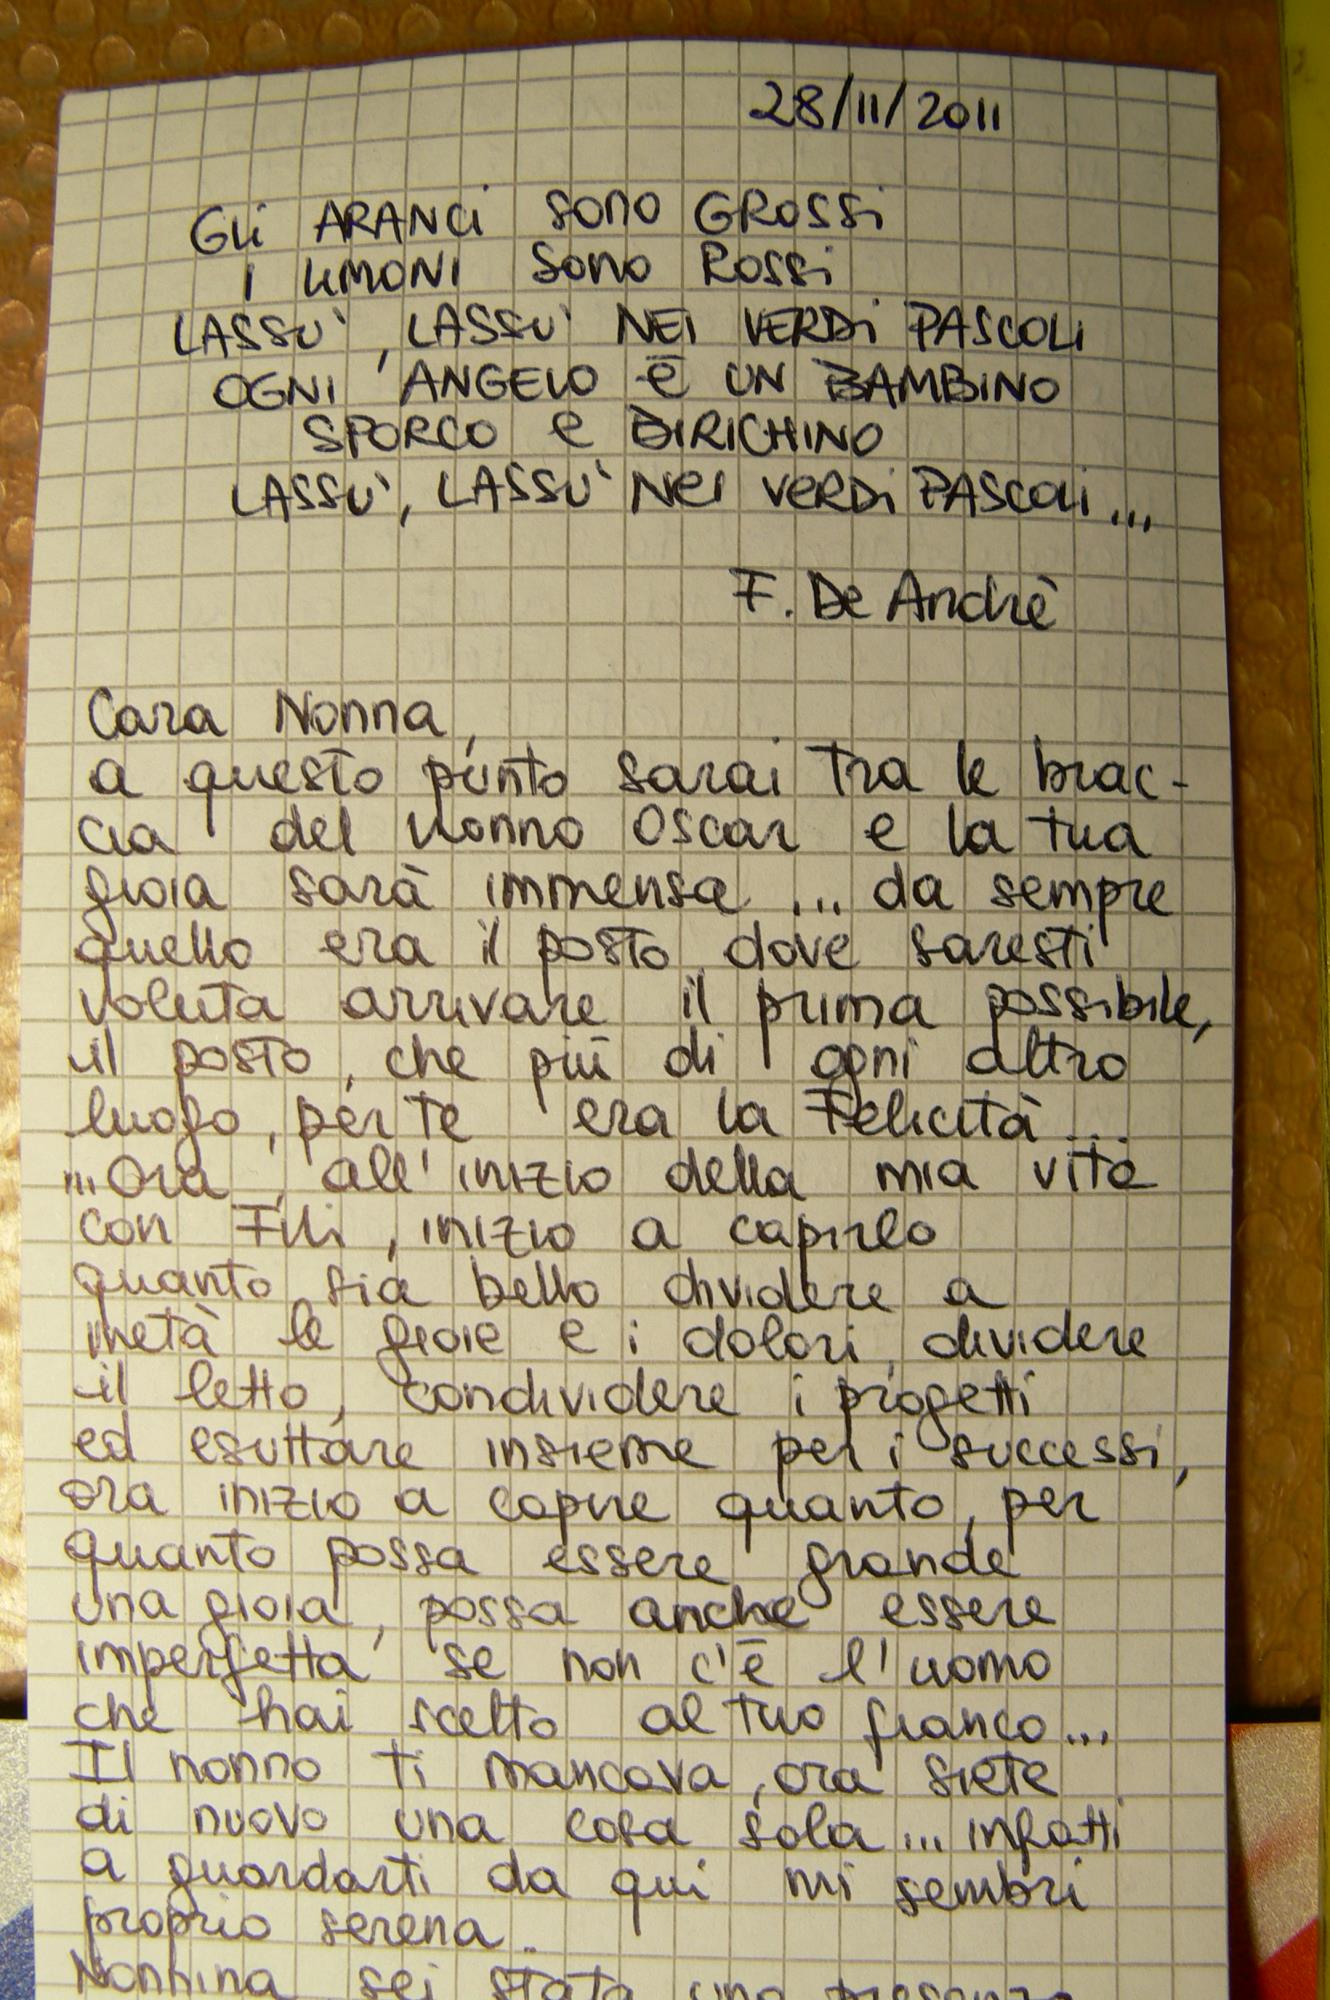 28/11/2011
Gli ARANCi sono GROSSi
I LIMONI sono Rossi
LASSU', LASSU' NEI VERDi PASCOLI
OGNI ANGELO È UN BAMBINO
SPORCO e BIRICHINO
LASSU', LASSU' NEI VERDi PASCOLi...
F. De Andrè
Cara Nonna,
a questo punto sarai tra le brac-
cia del nonno Oscar e la tua
gioia sarà immensa ... da sempre
quello era il posto dove saresti
voluta arrivare il prima possibile,
il posto, che più di ogni altro
luogo, per te era la Felicità...
...Ora, all'inizio della mia vita
con Filli, inizio a capirlo
quanto sia bello dividere a
metà le gioie e i dolori, dividere
il letto, condividere i progetti
ed esultare insieme per i successi,
ora inizio a capire quanto, per
quanto possa essere grande
una gioia, possa anche essere
imperfetta se non c'è l'uomo
che hai scelto al tuo fianco...
Il nonno ti mancava, ora siete
di nuovo una cosa sola... infatti
a guardarti da qui mi sembri
proprio serena.
Nonnina sei stata una presenza